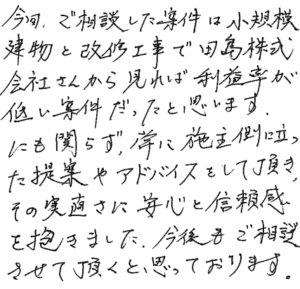 今回、ご相談した案件は小規模
建物と改修工事で田島株式
会社さんから見れば利益率が
低い案件だったと思います。
にも関らず、常に施主側に立っ
た提案やアドバイスをして頂き、
その実直さに安心と信頼感
を抱きました。今後もご相談
させて頂くと思っております。